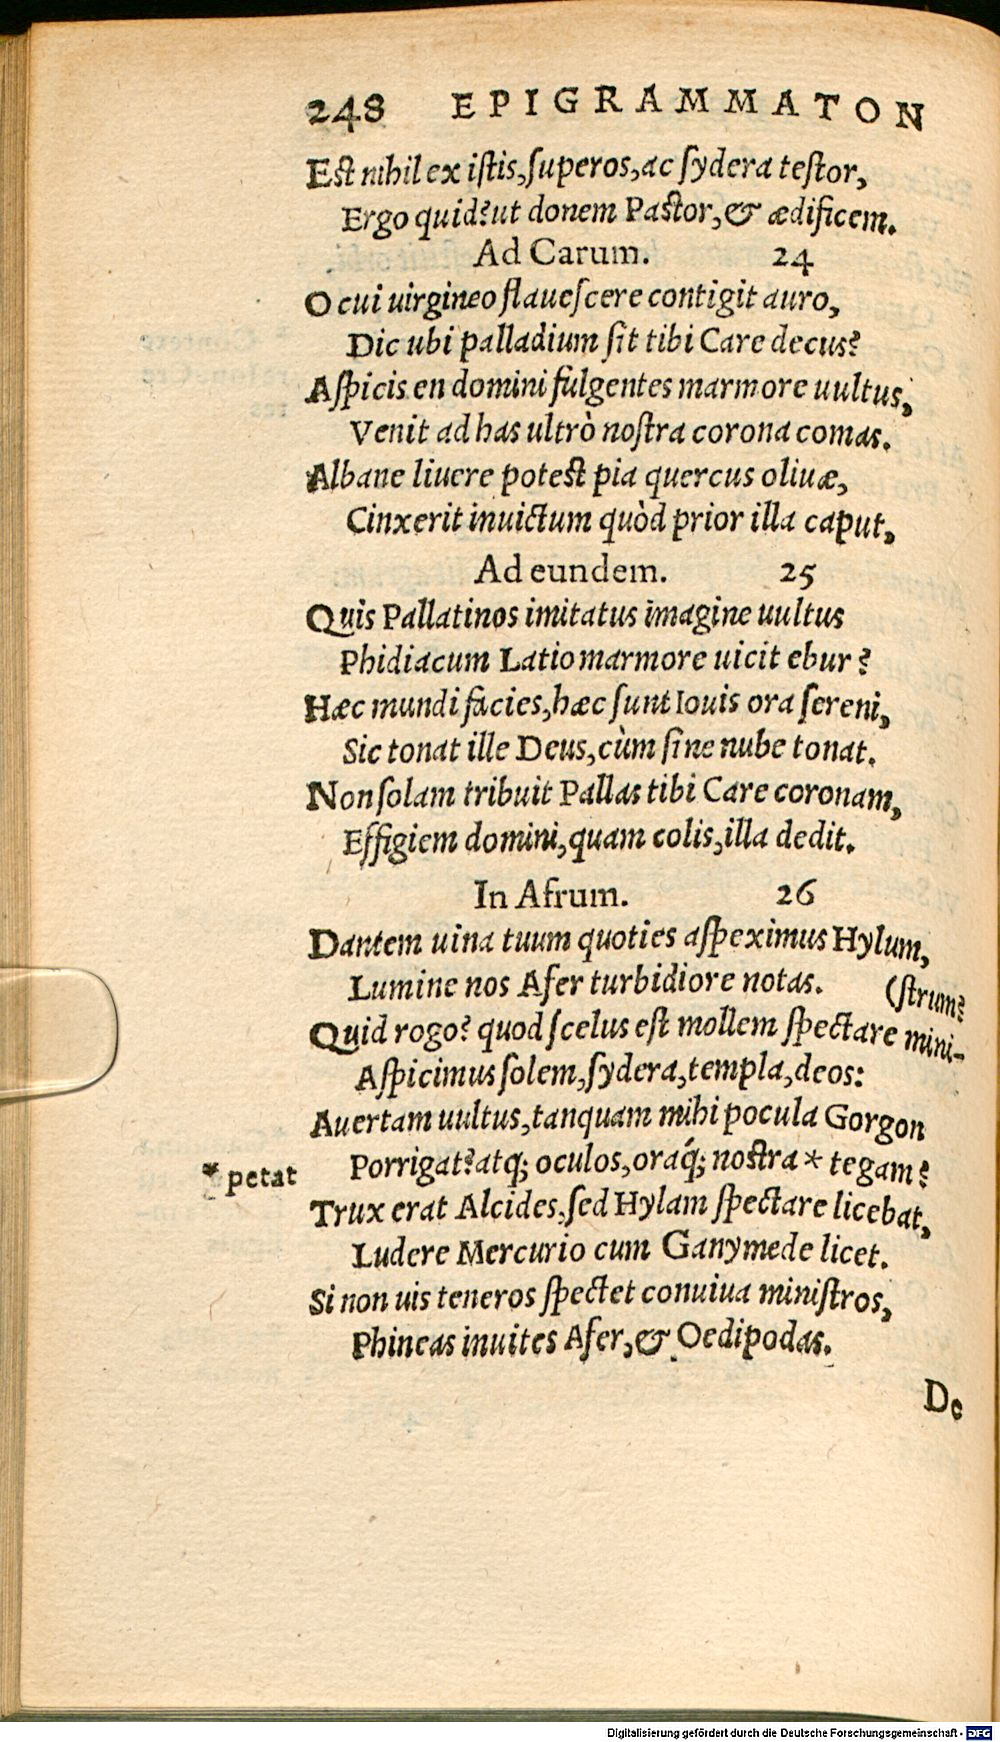 248 EPIGRAMMATON
Est nihil ex istis, superos, ac sydera testor,
Ergo quid? ut donem Pastor, & ædificem.
Ad Carum. 24
O cui uirgineo flauescere contigit auro,
Dic ubi palladium sit tibi Care decus?
Aspicis en domini fulgentes marmore uultus,
Venit ad has ultrò nostra corona comas.
Albane liuere potest pia quercus oliuæ,
Cinxerit inuictum quòd prior illa caput,
Ad eundem. 25
Quis Pallatinos imitatus imagine uultus
Phidiacum Latio marmore uicit ebur?
Hæc mundi facies, hæc sunt Iouis ora sereni,
Sic tonat ille Deus, cùm sine nube tonat.
Non solam tribuit Pallas tibi Care coronam,
Effigiem domini, quam colis, illa dedit.
In Afrum. 26
Dantem uina tuum quoties aspeximus Hylum,
Lumine nos Afer turbidiore notas. (strum?
Quid rogo? quod scelus est mollem spectare mini-
Aspicimus solem, sydera, templa, deos:
Auertam uultus, tanquam mihi pocula Gorgon
* petat Porrigat? atq; oculos, oraq́; nostra * tegam?
Trux erat Alcides, sed Hylam spectare licebat,
Ludere Mercurio cum Ganymede licet.
Si non uis teneros spectet conuiua ministros,
Phineas inuites Afer, & Oedipodas.
De
Digitalisierung gefördert durch die Deutsche Forschungsgemeinschaft - DFG